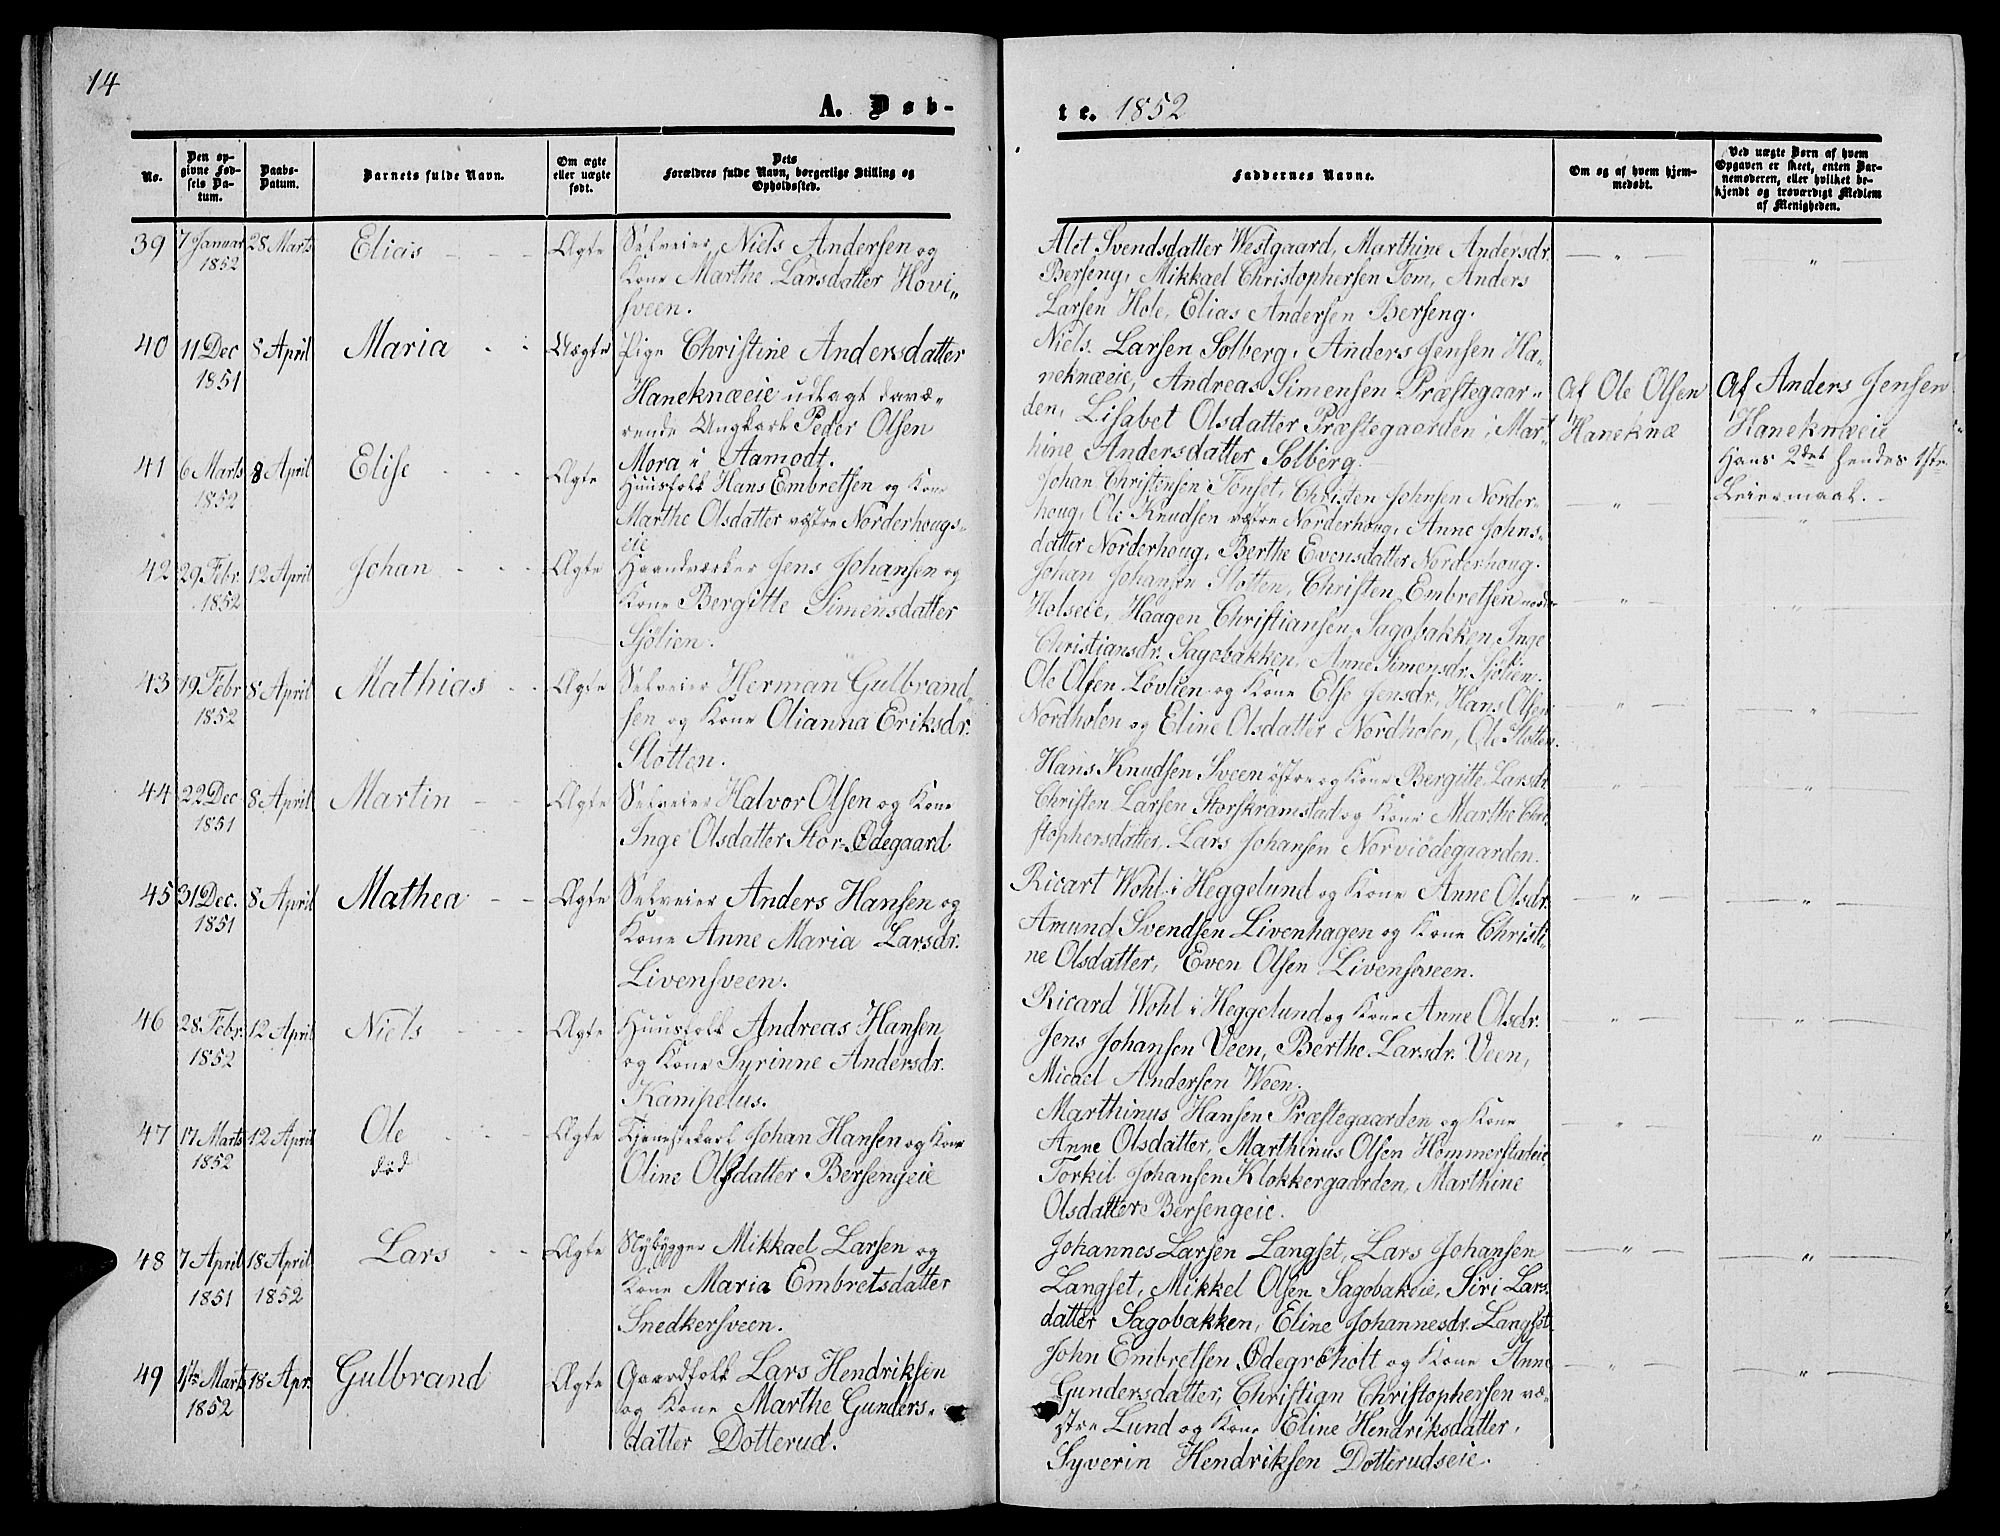 14
A. Døb-
te. 1852
No.
Den op-
givne Fød-
sels Da-
tum.
Daabs-
Datum.
Barnets fulde Navn.
Om ægte
eller uægte
født.
Dets
Forældres fulde Navn, borgerlige Stilling og
Opholdssted.
Faddernes Navne.
Om og af hvem hjem-
medøbt.
Ved uægte Børn af hvem
Opgaven er skeet, enten Bar-
nemoderen, eller hvilket be-
kjendt og troværdigt Medlem
af Menigheden.
39 7 Januar 28 Marts Elias Ægte Selveier Niels Andersen og
1852 Kone Marthe Larsdatter Hovi„
sveen.
Alet Svendsdatter Westgaard, Marthine Andersdr.
Berseng, Mikkael Christophersen Tom, Anders
Larsen Hole, Elias Andersen Berseng.
40 11 Dec 8 April Maria Uægte Pige Christine Andersdatter
1851 Haneknæeie udlagt davæ„
rende Ungkarl Peder Olsen
Mora i Aamodt.
Niels Larsen Solberg, Anders Jensen Ha-
neknæeie, Andreas Simensen Præstegaar„
den, Lisabet Olsdatter Præstegaarden, Mar-
thine Andersdatter Solberg.
Af Ole Olsen
Haneknæ
Af Anders Jensen
Haneknæeie
Hans 2det hendes 1ste
Leiermaal.
41 6 Marts 8 April Elise Ægte Huusfolk Hans Embretsen og Kone
1852 Marthe Olsdatter vestre Norderhougs-
eie
Johan Christensen Tönset, Christen Johnsen Norder-
houg, Ole Knudsen vestre Norderhoug, Anne Johns-
datter Norderhoug, Berthe Evensdatter Norderhoug.
42 29 Febr. 12 April Johan Ægte Haandværker Jens Johansen og
1852 Kone Bergitte Simensdatter
Sjölien.
Johan Johansen Slotten, Christen Embretsen
Holseie, Haagen Christiansen Sagobakken, Inge
Christiansdr. Sagobakken, Anne Simensdr. Sjölien.
43 19 Febr 8 April Mathias Ægte Selveier Herman Gulbrand„
1852 sen og Kone Olianna Eriksdr.
Slotten.
Ole Olsen Lövlien og Kone Else Jensdr., Hans Olsen
Nordholen og Eline Olsdatter Nordholen, Ole Slotten.
44 22 Dec 8 April Martin Ægte Selveier Halvor Olsen og Kone
1851 Inge Olsdatter Stor-Ödegaard
Hans Knudsen Sveen östre og Kone Bergitte Larsdr.
Christen Larsen Storskramstad og Kone Marthe Chri-
stophersdatter, Lars Johansen Norviödegaarden.
45 31 Dec. 8 April Mathea Ægte Selveier Anders Hansen og
1851 Kone Anne Maria Larsdr.
Livensveen.
Ricart Wohl i Heggelund og Kone Anne Olsdr.
Amund Svendsen Livenhagen og Kone Christi-
ne Olsdatter, Even Olsen Livensveen.
46 28 Febr. 12 April Niels Ægte Huusfolk Andreas Hansen
1852 og Kone Syrinne Andersdr.
Kampelus.
Ricard Wohl i Heggelund og Kone Anne Olsdr.
Jens Johansen Veen, Berthe Larsdr. Veen,
Micael Andersen Ween.
47 17 Marts 12 April Ole Ægte Tjenestekarl Johan Hansen og Kone
1852 död Oline Olsdatter Bersengeie
Marthinus Hansen Præstegaarden og Kone
Anne Olsdatter, Marthinus Olsen Hommerstadeie
Torkil Johansen Klokkergaarden, Marthine
Olsdatter Bersengeie.
48 7 April 18 April Lars Ægte Nybygger Mikkael Larsen og
1851 1852 Kone Maria Embretsdatter
Snedkersveen.
Johannes Larsen Langset, Lars Johansen
Langset, Mikkel Olsen Sagobakeie, Siri Lars-
datter Sagobakken, Eline Johannesdr. Langset
49 1ste Marts 18 Apr. Gulbrand Ægte Gaardfolk Lars Hendriksen
1852 og Kone Marthe Gunders-
datter Dotterud.
John Embretsen Ödegröholt og Kone Anne
Gundersdatter, Christian Christophersen væ-
stre Lund og Kone Eline Hendriksdatter,
Syverin Hendriksen Dotterudseie.